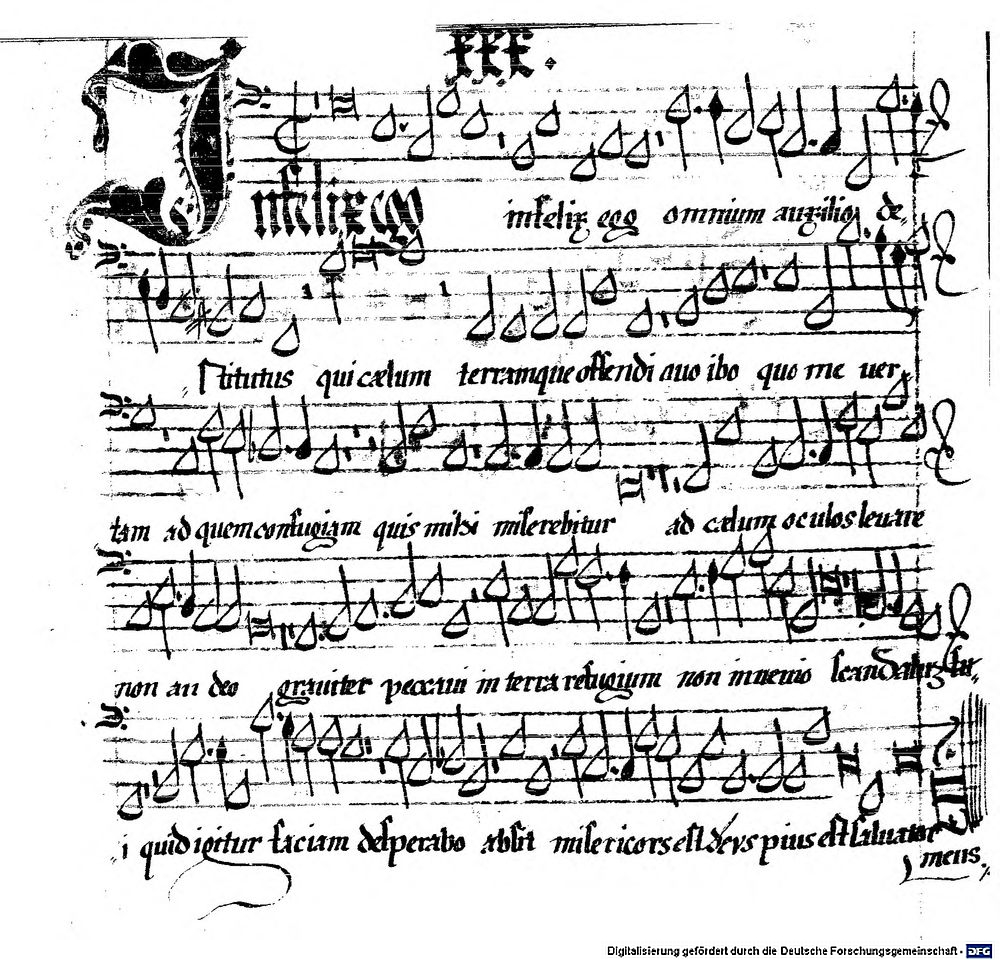 XXX.
Infelix ego infelix ego omnium auxilio de-
stitutus qui cœlum terramque offendi quo ibo quo me ver-
tam ad quem confugiam quis mihi miserebitur ad cœlum oculos levare
non audeo graviter peccavi in terra refugium non invenio scandalum fu-
i quid igitur faciam desperabo absit misericors est deus pius est salvator
meus.
Digitalisierung gefördert durch die Deutsche Forschungsgemeinschaft - DFG